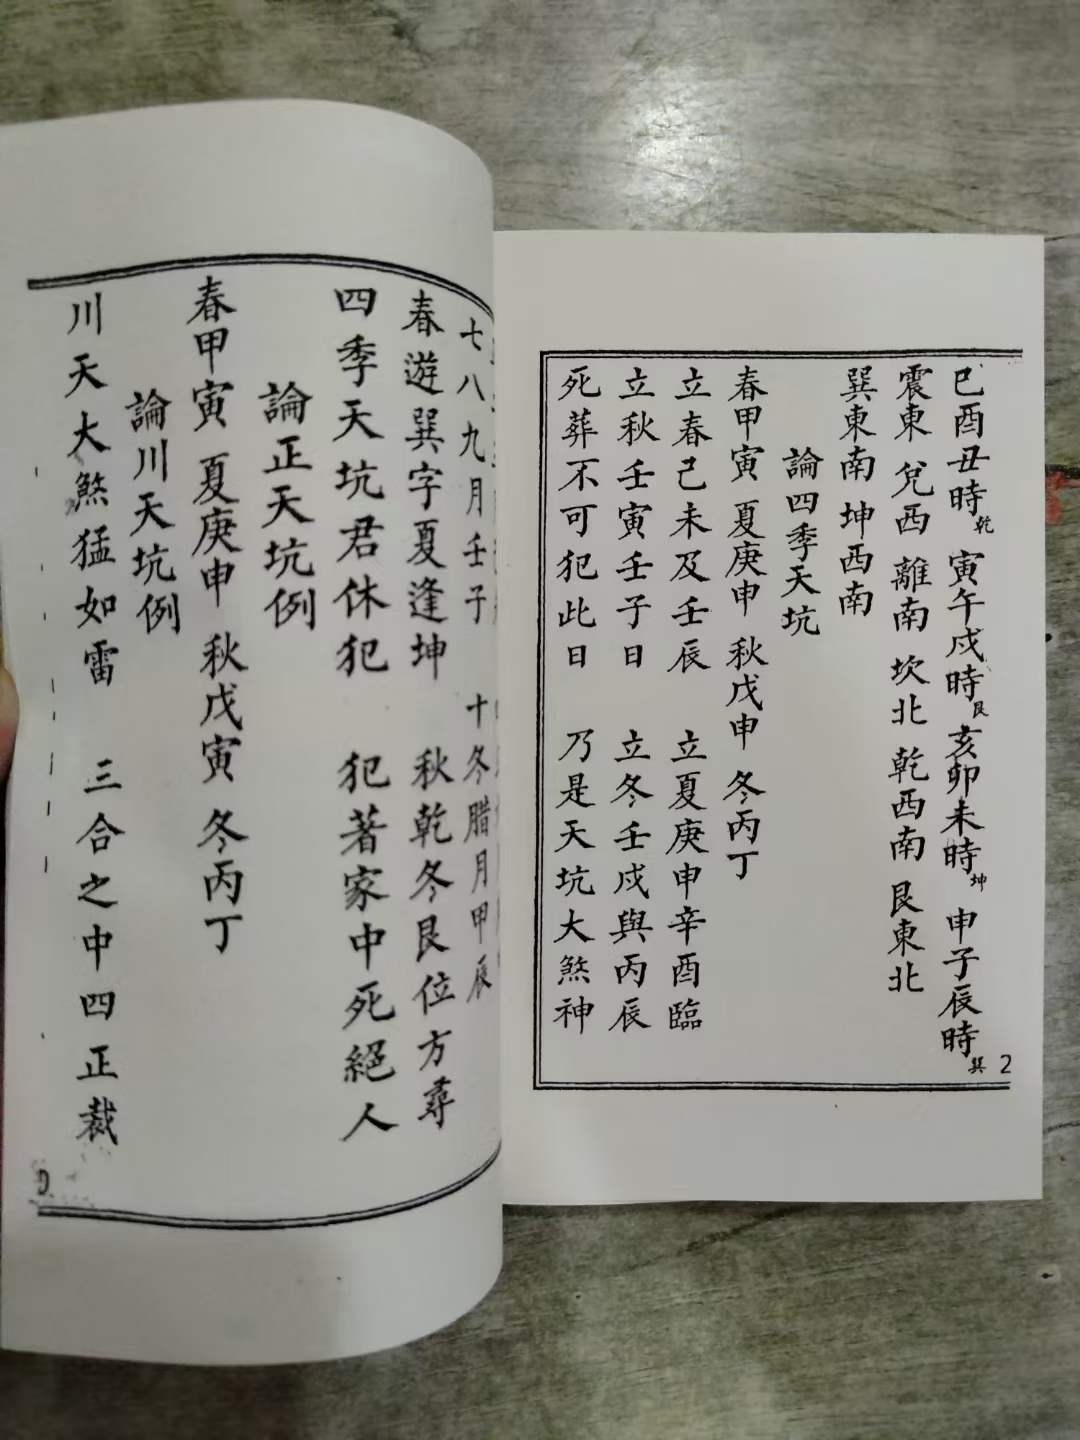 巳酉丑時乾 寅午戌時艮 亥卯未時坤 申子辰時巽
震東 兌西 離南 坎北 乾西南 艮東北
巽東南 坤西南
論四季天坑
春甲寅 夏庚申 秋戊申 冬丙丁
立春己未及壬辰 立夏庚申辛酉臨
立秋壬寅壬子日 立冬壬戌與丙辰
死葬不可犯此日 乃是天坑大煞神
2
七八九月壬子 十冬腊月甲辰
春遊巽字夏逢坤 秋乾冬艮位方尋
四季天坑君休犯 犯著家中死絕人
論正天坑例
春甲寅 夏庚申 秋戊寅 冬丙丁
論川天坑例
川天大煞猛如雷 三合之中四正裁